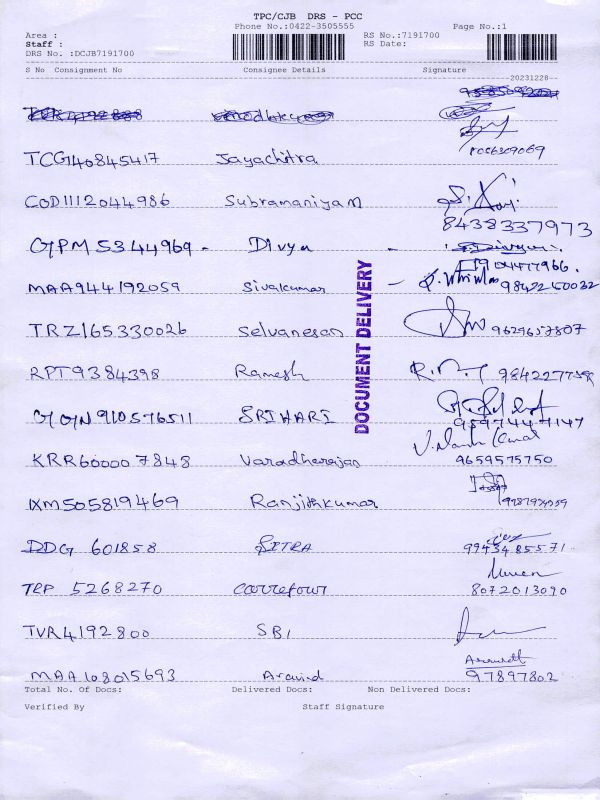 TPC/CJB DRS - PCC
Phone No.:0422-3505555 Page No.:1
Area : RS No.:7191700
Staff : RS Date:
DRS No. :DCJB7191700
S No Consignment No Consignee Details Signature
20231228
TCG140845417 Jayachitra
COD1112044986 Subramaniyam
8438337973
GPM 5344969 - Divya -
MAA944192059 Sivakumar - 9842250032
TRZ165330026 Selvanesan 9629657807
RPT9384398 Ramesh
GGN910576511 SRIHARI
9597447147
KRR600007848 Varadharajan 9659575750
IXM505819469 Ranjithkumar
DDG 601858 SITRA 9943485571
TRP 5268270 Carrefour 8072013090
TVR4192800 SBI
MAA108015693 Aravind 97897802
DOCUMENT DELIVERY
Total No. Of Docs: Delivered Docs: Non Delivered Docs:
Verified By Staff Signature